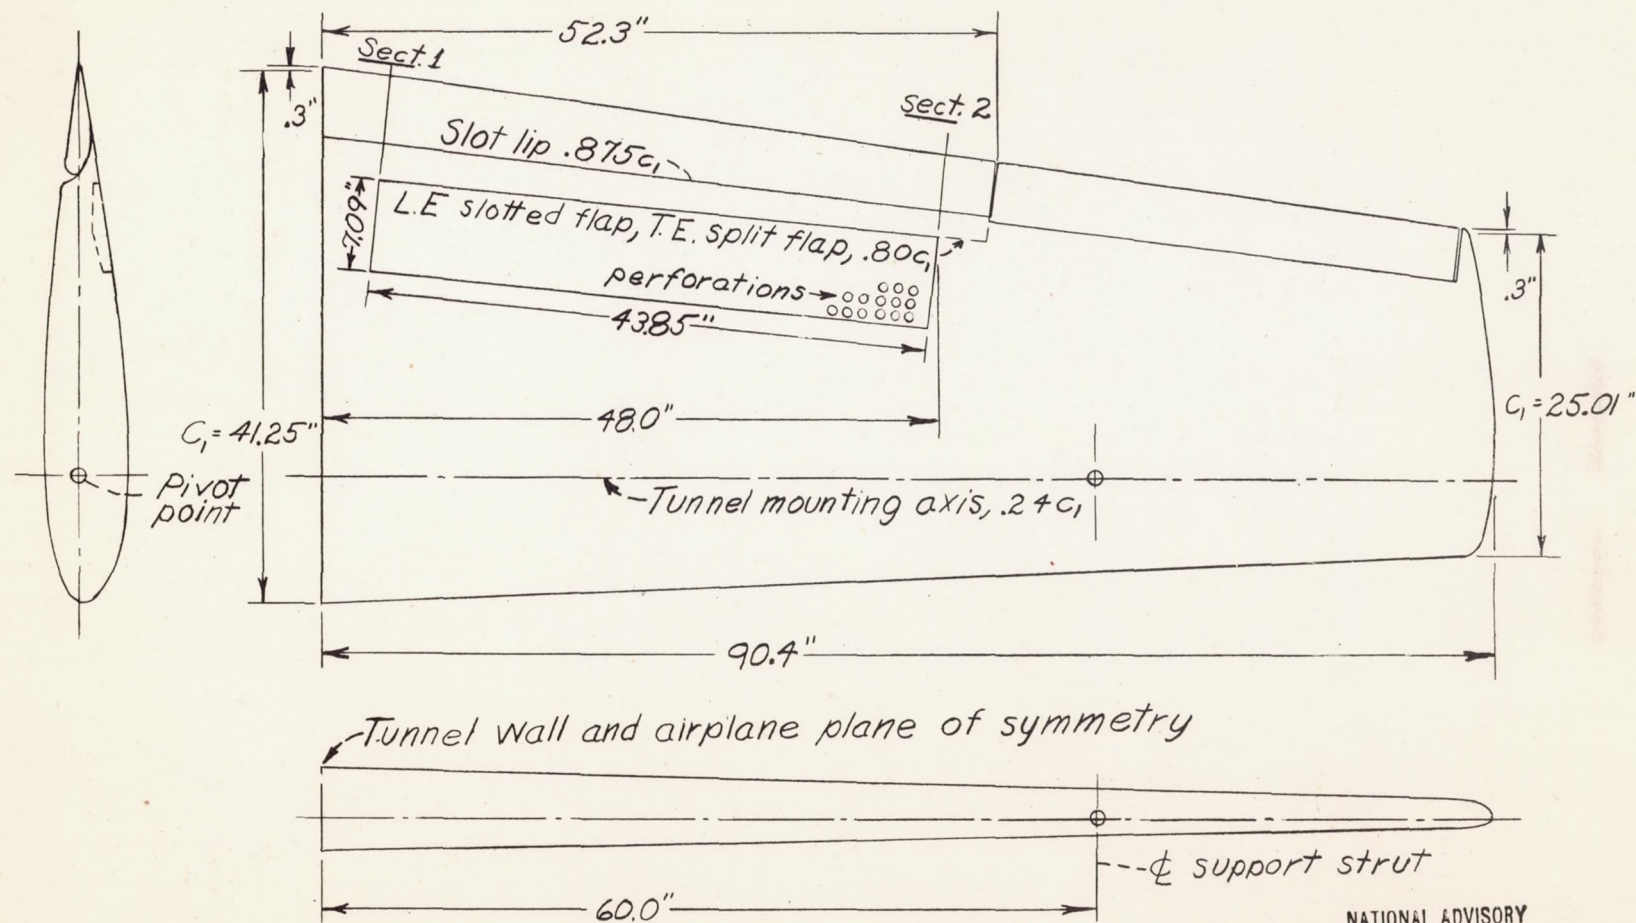 52.3"
Sect. 1
.3"
sect. 2
Slot lip .875c₁
7.09"
L.E slotted flap, T.E. split flap, .80c₁
perforations
43.85"
.3"
48.0"
C₁ = 41.25"
C₁ = 25.01"
Pivot
point
Tunnel mounting axis, .24c₁
90.4"
Tunnel wall and airplane plane of symmetry
℄ support strut
60.0"
NATIONAL ADVISORY